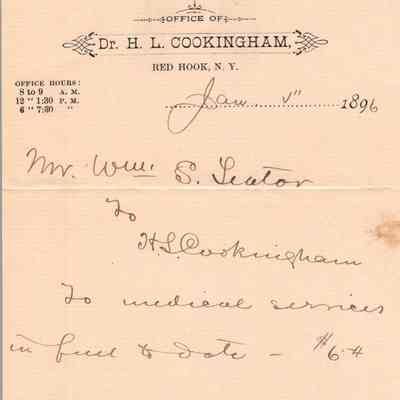 OFFICE OF
Dr. H. L. COOKINGHAM,
RED HOOK, N. Y.
OFFICE HOURS:
8 to 9 A. M.
12 " 1:30 P. M.
6 " 7:30 "
Jan 1896
Mr. Wm. S. Teator
To
H. L. Cookingham
To medical services
in full to date - $6.